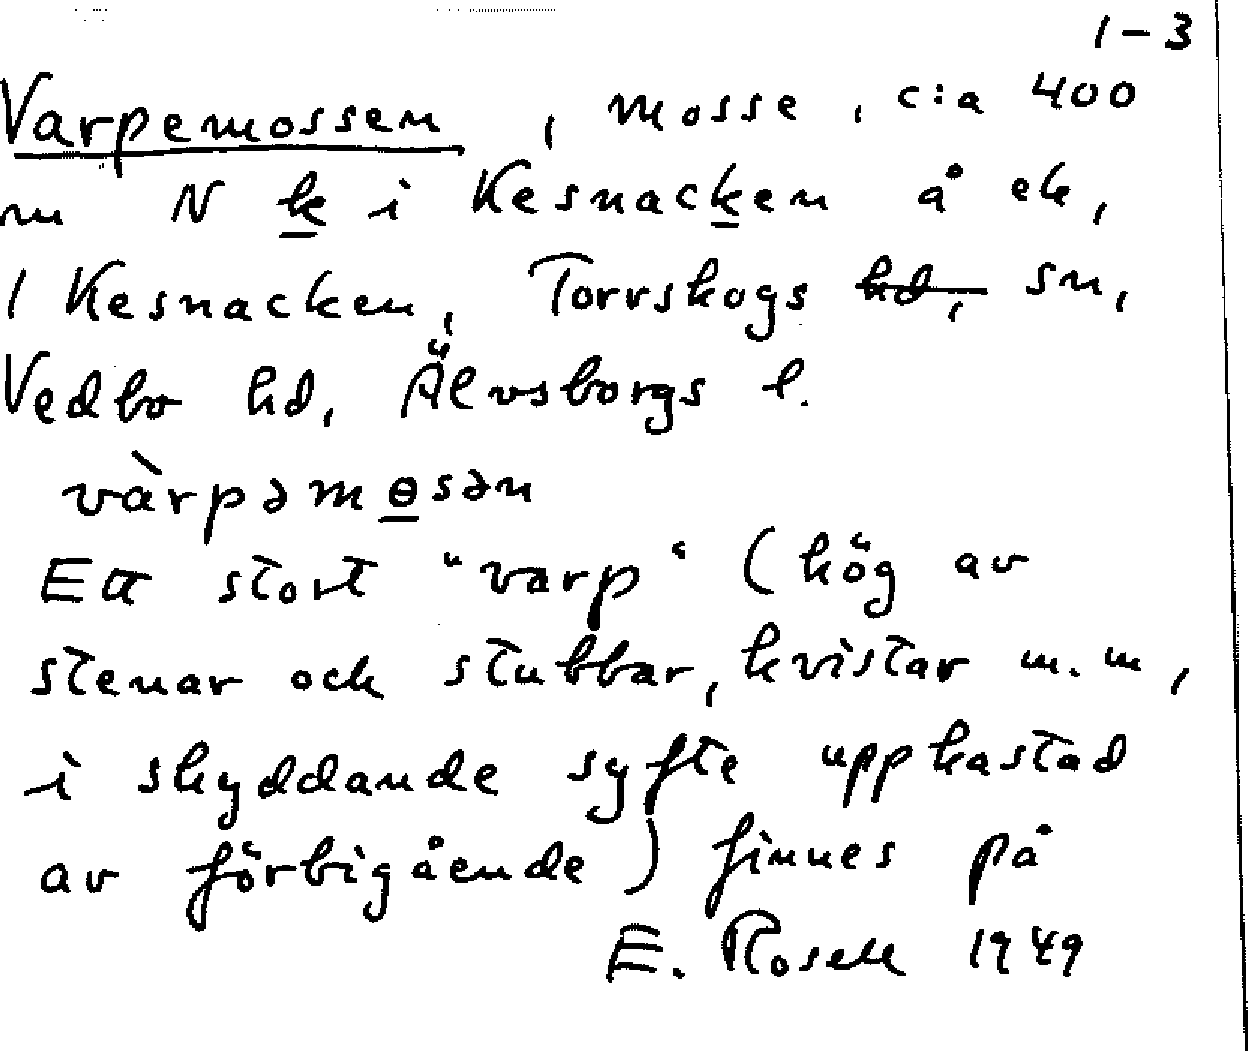 1-3
Varpemossen, mosse, c:a 400
m N k i Kesnacken å ek,
1 Kesnacken, Torrskogs hd, sn,
Vedbo hd, Älvsborgs l.
vàrpəmɵsən
Ett stort "varp" (hög av
stenar och stubbar, kvistar m.m,
i skyddande syfte uppkastad
av förbigående) finnes på
E. Rosell 1949